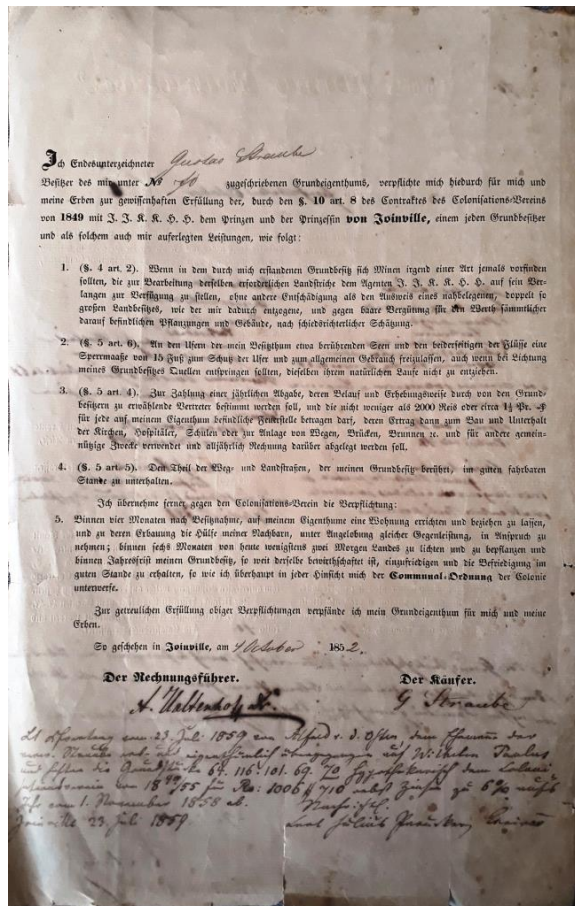 Ich Endesunterzeichneter Gustav Straube
Besitzer des mir unter № 70 zugeschriebenen Grundeigenthums, verpflichte mich hiedurch für mich und
meine Erben zur gewissenhaften Erfüllung der, durch den §. 10 art. 8 des Contractes des Colonisations-Vereins
von 1849 mit J. J. K. K. H. H. dem Prinzen und der Prinzessin von Joinville, einem jeden Grundbesitzer
und als solchem auch mir auferlegten Leistungen, wie folgt:
1. (§. 4 art. 2). Wenn in dem durch mich erstandenen Grundbesitz sich Minen irgend einer Art jemals vorfinden
sollten, die zur Bearbeitung derselben erforderlichen Landstriche dem Agenten J. J. K. K. H. H. auf sein Ver-
langen zur Verfügung zu stellen, ohne andere Entschädigung als den Ausweis eines nahbelegenen, doppelt so
großen Landbesitzes, wie der mir dadurch entzogene, und gegen baare Vergütung für den Werth sämmtlicher
darauf befindlichen Pflanzungen und Gebäude, nach schiedsrichterlicher Schätzung.
2. (§. 5 art. 6). An den Ufern der mein Besitzthum etwa berührenden Seen und den beiderseitigen der Flüsse eine
Sperrmaaße von 15 Fuß zum Schutz der Ufer und zum allgemeinen Gebrauch freizulassen, auch wenn bei Lichtung
meines Grundbesitzes Quellen entspringen sollten, dieselben ihrem natürlichen Laufe nicht zu entziehen.
3. (§. 5 art. 4). Zur Zahlung einer jährlichen Abgabe, deren Belauf und Erhebungsweise durch von den Grund-
besitzern zu erwählende Vertreter bestimmt werden soll, und die nicht weniger als 2000 Reis oder circa 1½ Pr. ₰
für jede auf meinem Eigenthum befindliche Feuerstelle betragen darf, deren Ertrag dann zum Bau und Unterhalt
der Kirchen, Hospitäler, Schulen oder zur Anlage von Wegen, Brücken, Brunnen ꝛc. und für andere gemein-
nützige Zwecke verwendet und alljährlich Rechnung darüber abgelegt werden soll.
4. (§. 5 art. 5). Den Theil der Weg- und Landstraßen, der meinen Grundbesitz berührt, im guten fahrbaren
Stande zu unterhalten.
Ich übernehme ferner gegen den Colonisations-Verein die Verpflichtung:
5. Binnen vier Monaten nach Besitznahme, auf meinem Eigenthume eine Wohnung errichten und beziehen zu lassen,
und zu deren Erbauung die Hülfe meiner Nachbarn, unter Angelobung gleicher Gegenleistung, in Anspruch zu
nehmen; binnen sechs Monaten von heute wenigstens zwei Morgen Landes zu lichten und zu bepflanzen und
binnen Jahresfrist meinen Grundbesitz, so weit derselbe bewirthschaftet ist, einzufriedigen und die Befriedigung im
guten Stande zu erhalten, so wie ich überhaupt in jeder Hinsicht mich der Communal-Ordnung der Colonie
unterwerfe.
Zur getreulichen Erfüllung obiger Verpflichtungen verpfände ich mein Grundeigenthum für mich und meine
Erben.
So geschehen in Joinville, am 4 October 1852.
Der Rechnungsführer. Der Käufer.
G Straube
23. Juli 1859 von dem der
auf Wilhelm
und 67. 116. 101. 69. 70 dem
für Rs: 1006 $ 710 nebst zu 6%
1. November 1858 ab.
Joinville 23. Juli 1859